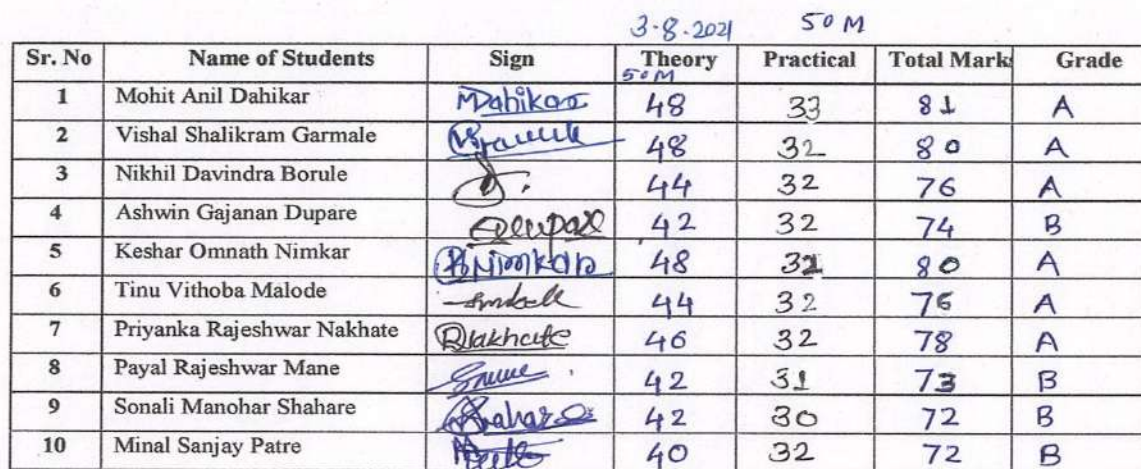 3-8-2021 50 M
Sr. No Name of Students Sign Theory Practical Total Mark Grade
50M
1 Mohit Anil Dahikar MDahikar 48 33 81 A
2 Vishal Shalikram Garmale 48 32 80 A
3 Nikhil Davindra Borule 44 32 76 A
4 Ashwin Gajanan Dupare 42 32 74 B
5 Keshar Omnath Nimkar 48 32 80 A
6 Tinu Vithoba Malode 44 32 76 A
7 Priyanka Rajeshwar Nakhate 46 32 78 A
8 Payal Rajeshwar Mane 42 31 73 B
9 Sonali Manohar Shahare 42 30 72 B
10 Minal Sanjay Patre 40 32 72 B